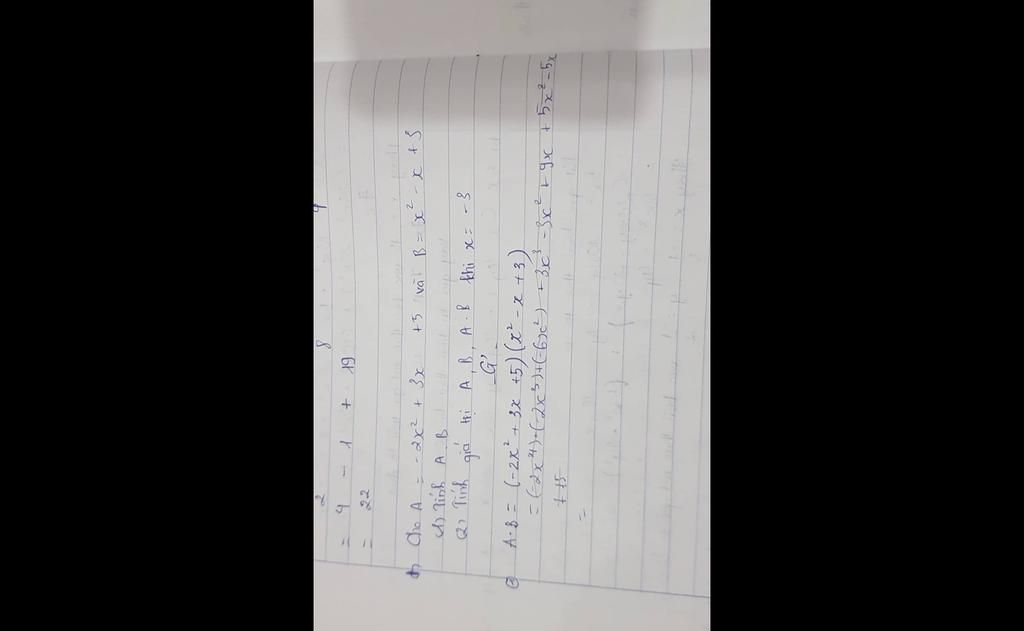 2 8 4
= 4 - 1 + 19
= 22
b, Cho A = -2x² + 3x +5 và B = x² - x + 3
(1) Tính A.B
(2) Tính giá trị A, B, A.B khi x = -3
-G'-
A.B = (-2x² + 3x +5)(x² - x + 3)
= (-2x⁴)-(-2x³)+(-6x²) +3x³ -3x² + 9x + 5x² - 5x
+ 15
=